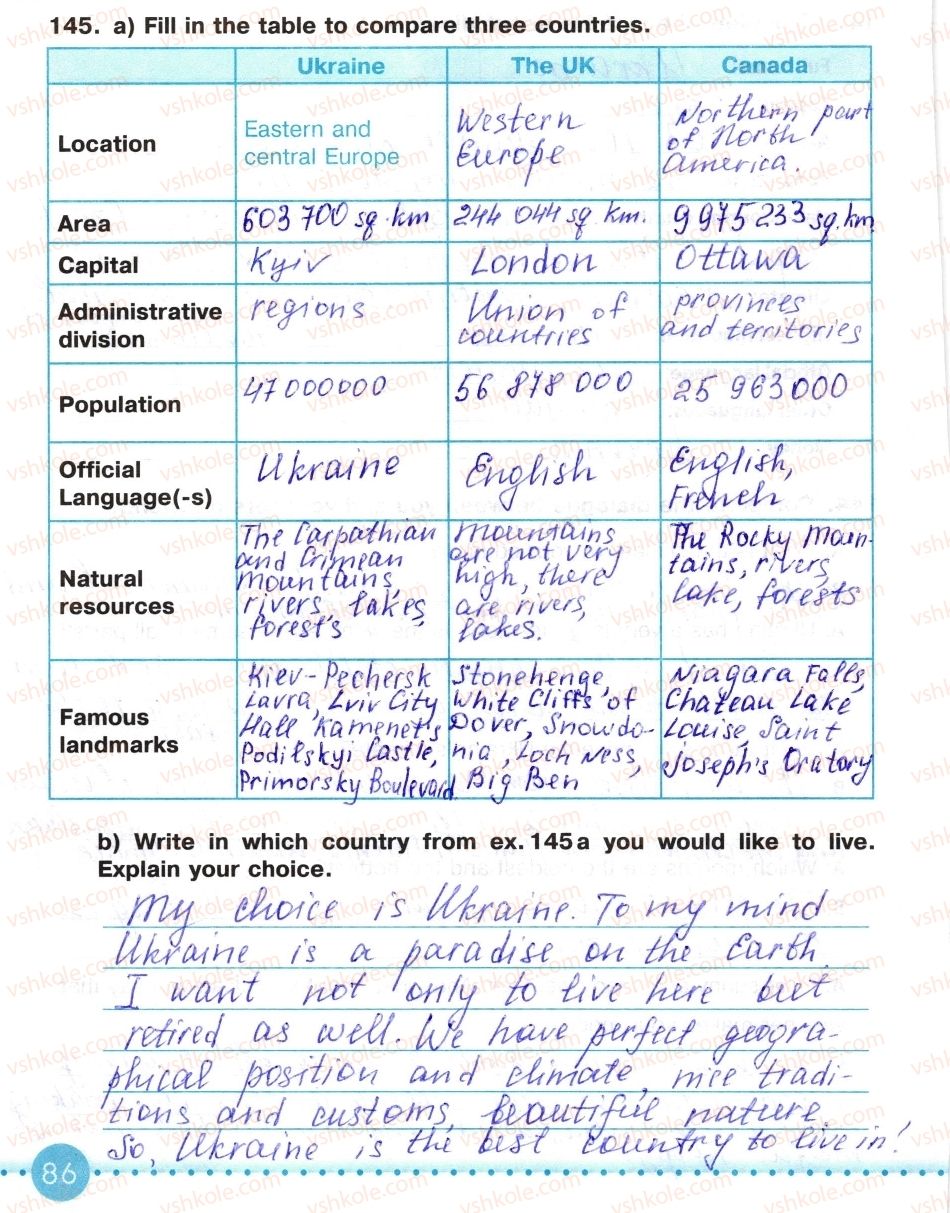 145. a) Fill in the table to compare three countries.
Ukraine The UK Canada
Location
Eastern and
central Europe
Western
Europe
Northern part
of North
America.
Area 603 700 sq. km 244 044 sq. km. 9 975 233 sq. km
Capital Kyiv London Ottawa
Administrative
division
regions
Union of
countries
provinces
and territories
Population 47 000000 56 878 000 25 963 000
Official
Language(-s)
Ukraine
English
English,
French
Natural
resources
The Carpathian
and Crimean
mountains,
rivers, lakes,
forest's
mountains
are not very
high, there
are rivers,
lakes.
The Rocky Moun-
tains, rivers,
lake, forests
Famous
landmarks
Kiev-Pechersk
Lavra, Lviv City
Hall Kamenet's
Podilskyi Castle,
Primorsky Boulevard
Stonehenge,
White Cliffs of
Dover, Snowdo-
nia, Loch Ness,
Big Ben
Niagara Falls,
Chateau Lake
Louise, Saint
Joseph's Oratory
b) Write in which country from ex. 145 a you would like to live.
Explain your choice.
My choice is Ukraine. To my mind
Ukraine is a paradise on the Earth.
I want not only to live here but
retired as well. We have perfect geogra-
phical position and climate, nice tradi-
tions and customs, beautiful nature.
So, Ukraine is the best country to live in!
86
vshkole.com